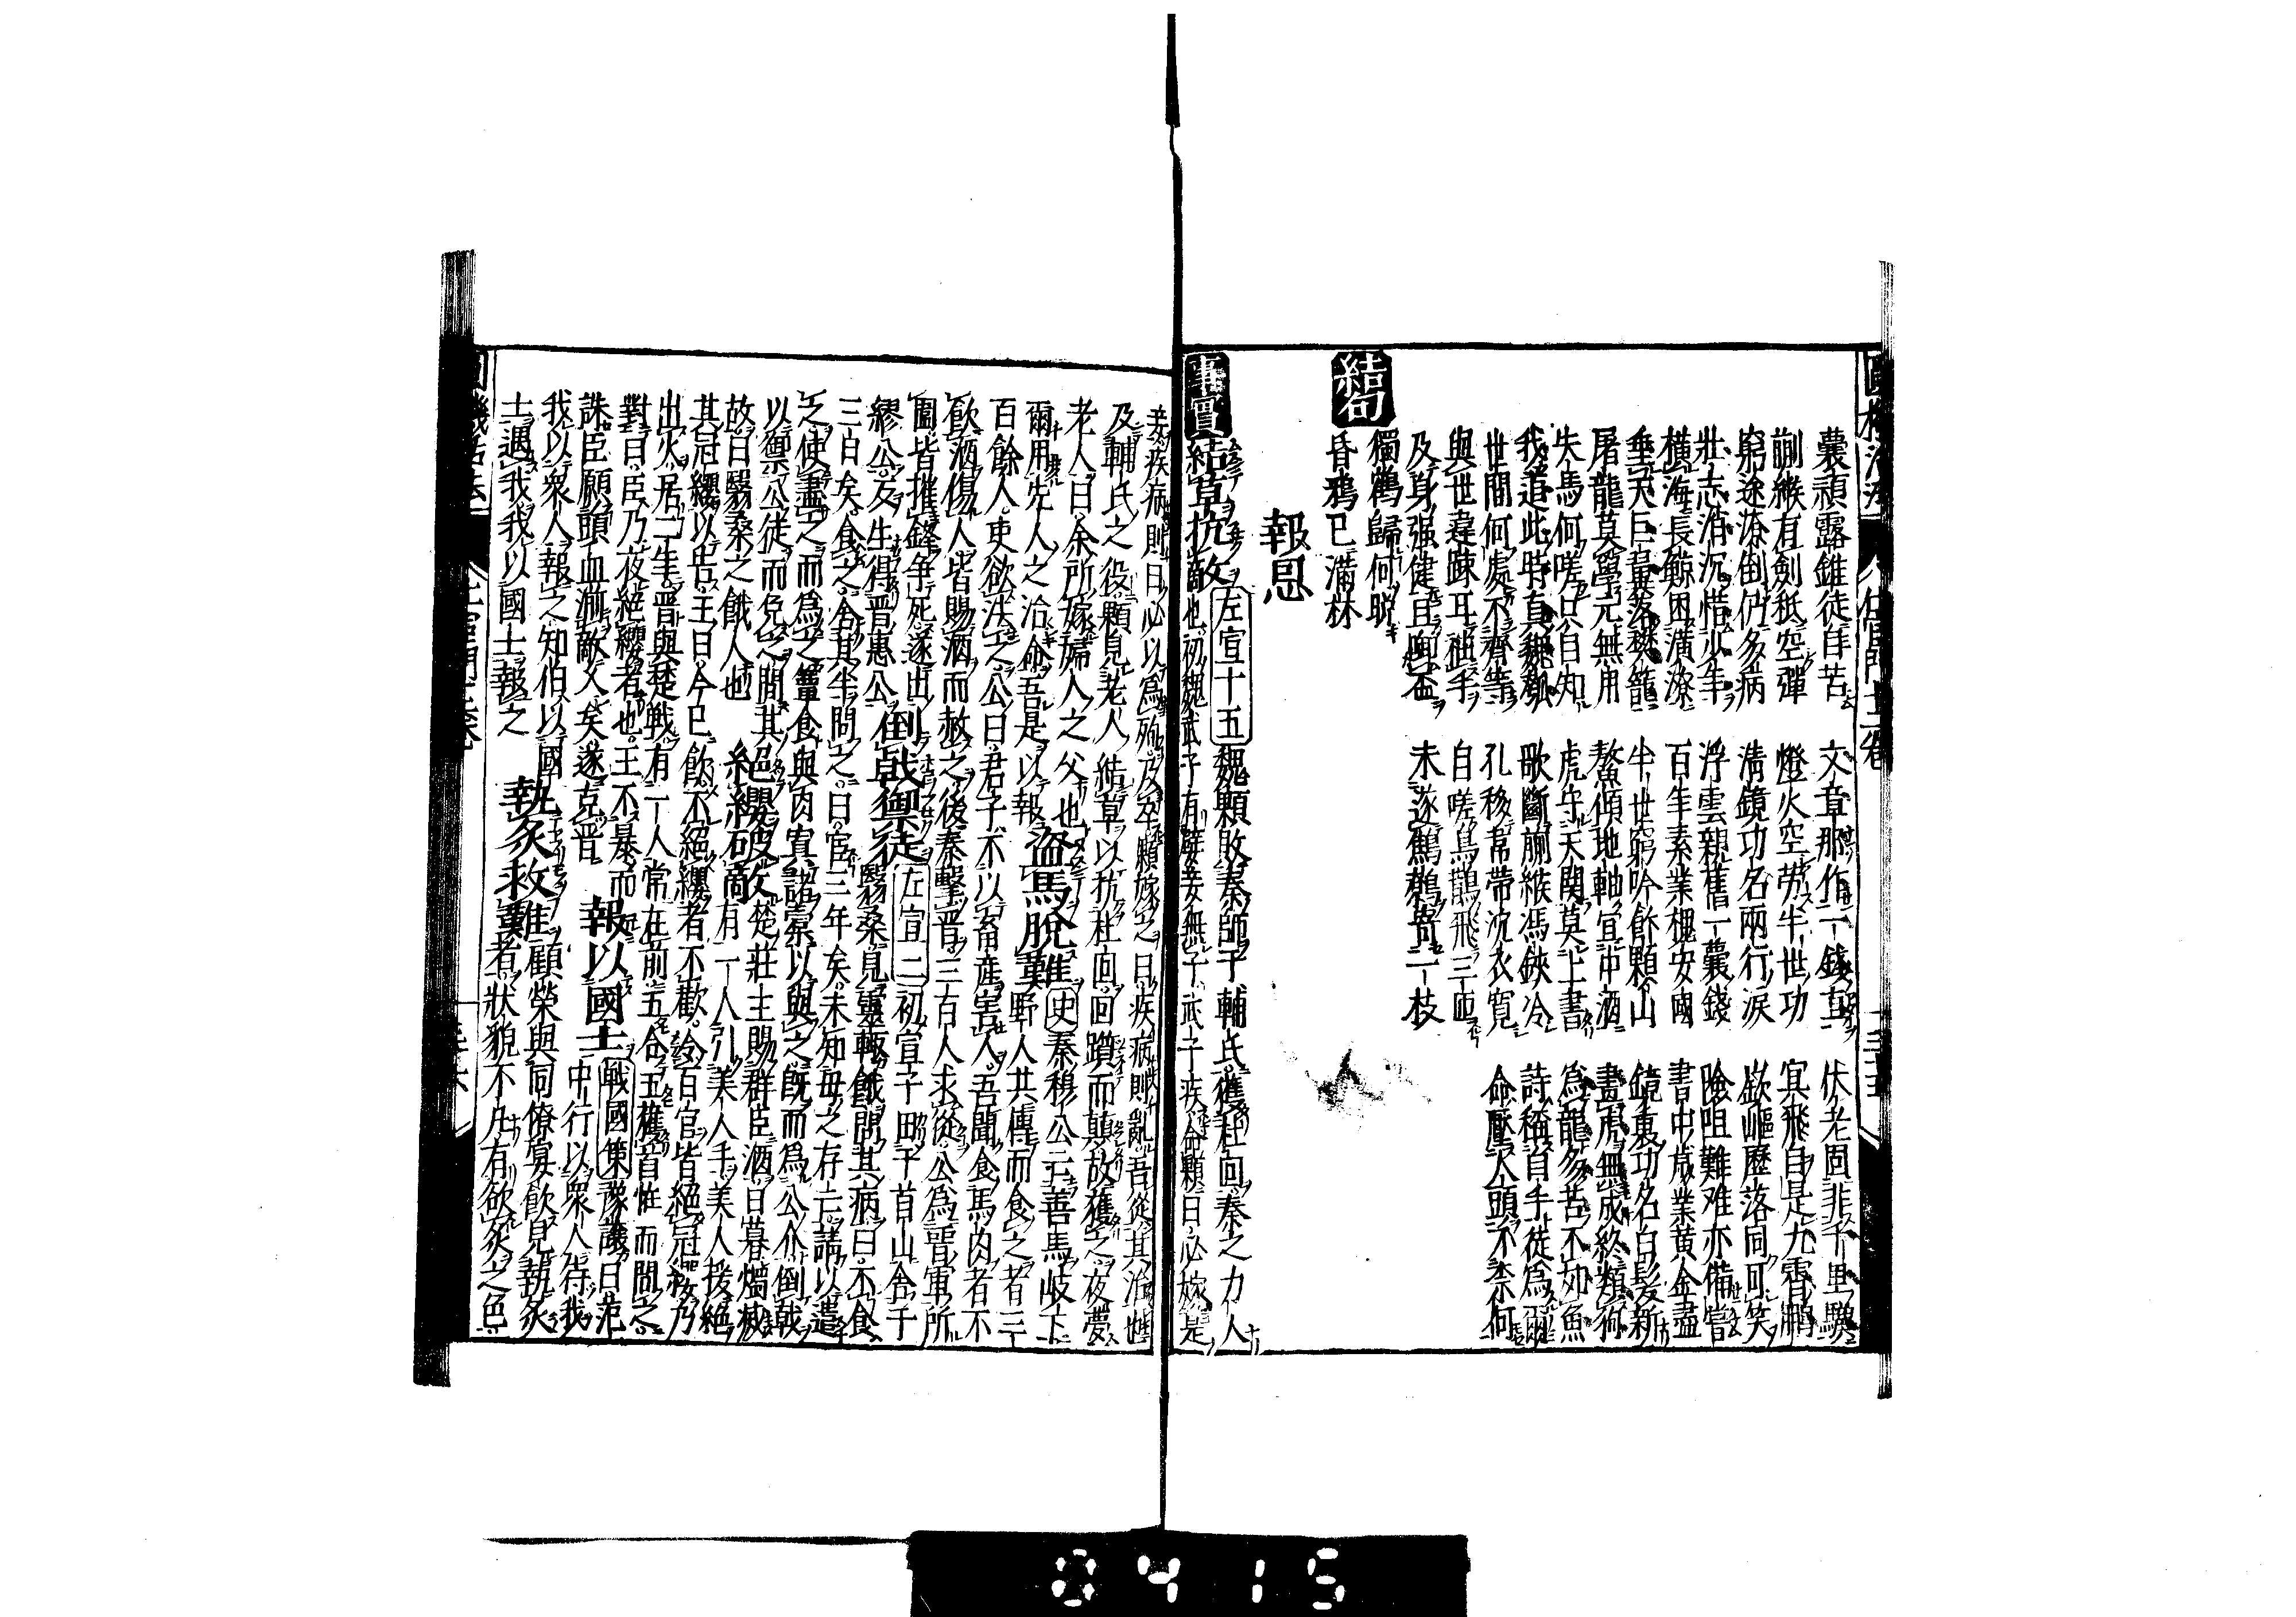 囊禎露錐徒自苦 文章那作一錢直 伏老固非千里驥
蒯緱有劍秪空彈 燈火空勞半世功 冥飛自是九霄鵬
窮途潦倒仍多病 清鏡功名兩行淚 嶔嶇歷落同可笑
壯志消沉惜少年 浮雲親舊一囊錢 險阻難难亦備嘗
橫海長鯨困潢潦 百年素業槐安國 書中歲業黃金盡
垂天巨翼落樊籠 半世窮吟飯顆山 鏡裏功名白髮新
屠龍莫學元無用 鰲傾地軸宜中酒 畫虎無成終類狗
失馬何嗟只自知 虎守天関莫上書 為龍多苦不如魚
我道此時真 歌斷蒯緱馮鋏冷 詩稱自手徒為爾
世間何處不齊等 孔移帶沈衣寬 命壓人頭不柰何
與世違踈耳 手 自嗟烏鵲飛三匝
及身强健且啣盃 未遂鷦鷯寄一枝
獨鶴歸何晚
結句 昏鴉已滿林
報恩
事實 結草抗敵 左宣十五 魏顆敗秦師于輔氏獲杜回秦之力人
也初魏武子有嬖妾無子武子疾命顆曰必嫁是
妾疾病則曰必以為殉及卒顆嫁之曰疾病則亂吾從其治也
及輔氏之役顆見老人結草以抗杜回回躓而顛故獲之夜夢
老人曰余所嫁婦人之父也 盜馬脫難 史 秦穆公亡善馬岐下
爾用先人之治命吾是以報 野人共傳而食之者三
百餘人吏欲法之公曰君子不以畜產害人吾聞食馬肉者不
飲酒傷人皆賜酒而赦之後秦擊晉三百人求從公為晉軍所
圍皆摧鋒爭死遂出 倒戟禦徒 左宣二 初宣子田于首山舍于
繆公反生得晉惠公 翳桑見靈輒餓問其病曰不食
三日矣食之舍其半問之曰宦三年矣未知母之存亡請以遺
之使盡之而為之簞食與肉寘諸橐以與之既而為公介倒戟
以禦公徒而免之問其 絕纓破敵 楚莊王賜群臣酒日暮燭滅
故曰翳桑之餓人也 有一人引美人手美人援絕
其冠纓以告王曰今已飲不絕纓者不歡令百官皆絕冠纓乃
出火居二年晋與楚戰有一人常在前五合五獲首怪而問之
對曰臣乃夜絕纓者也王不暴而 報以國士 戰國策 豫讓曰范
誅臣願頭血湔敵久矣遂克晋 中行以衆人待我
我以衆人報之知伯以國 執炙救難 顧榮與同僚宴飲見執炙
士遇我我以國士報之 者狀貌不凡有欲炙之色